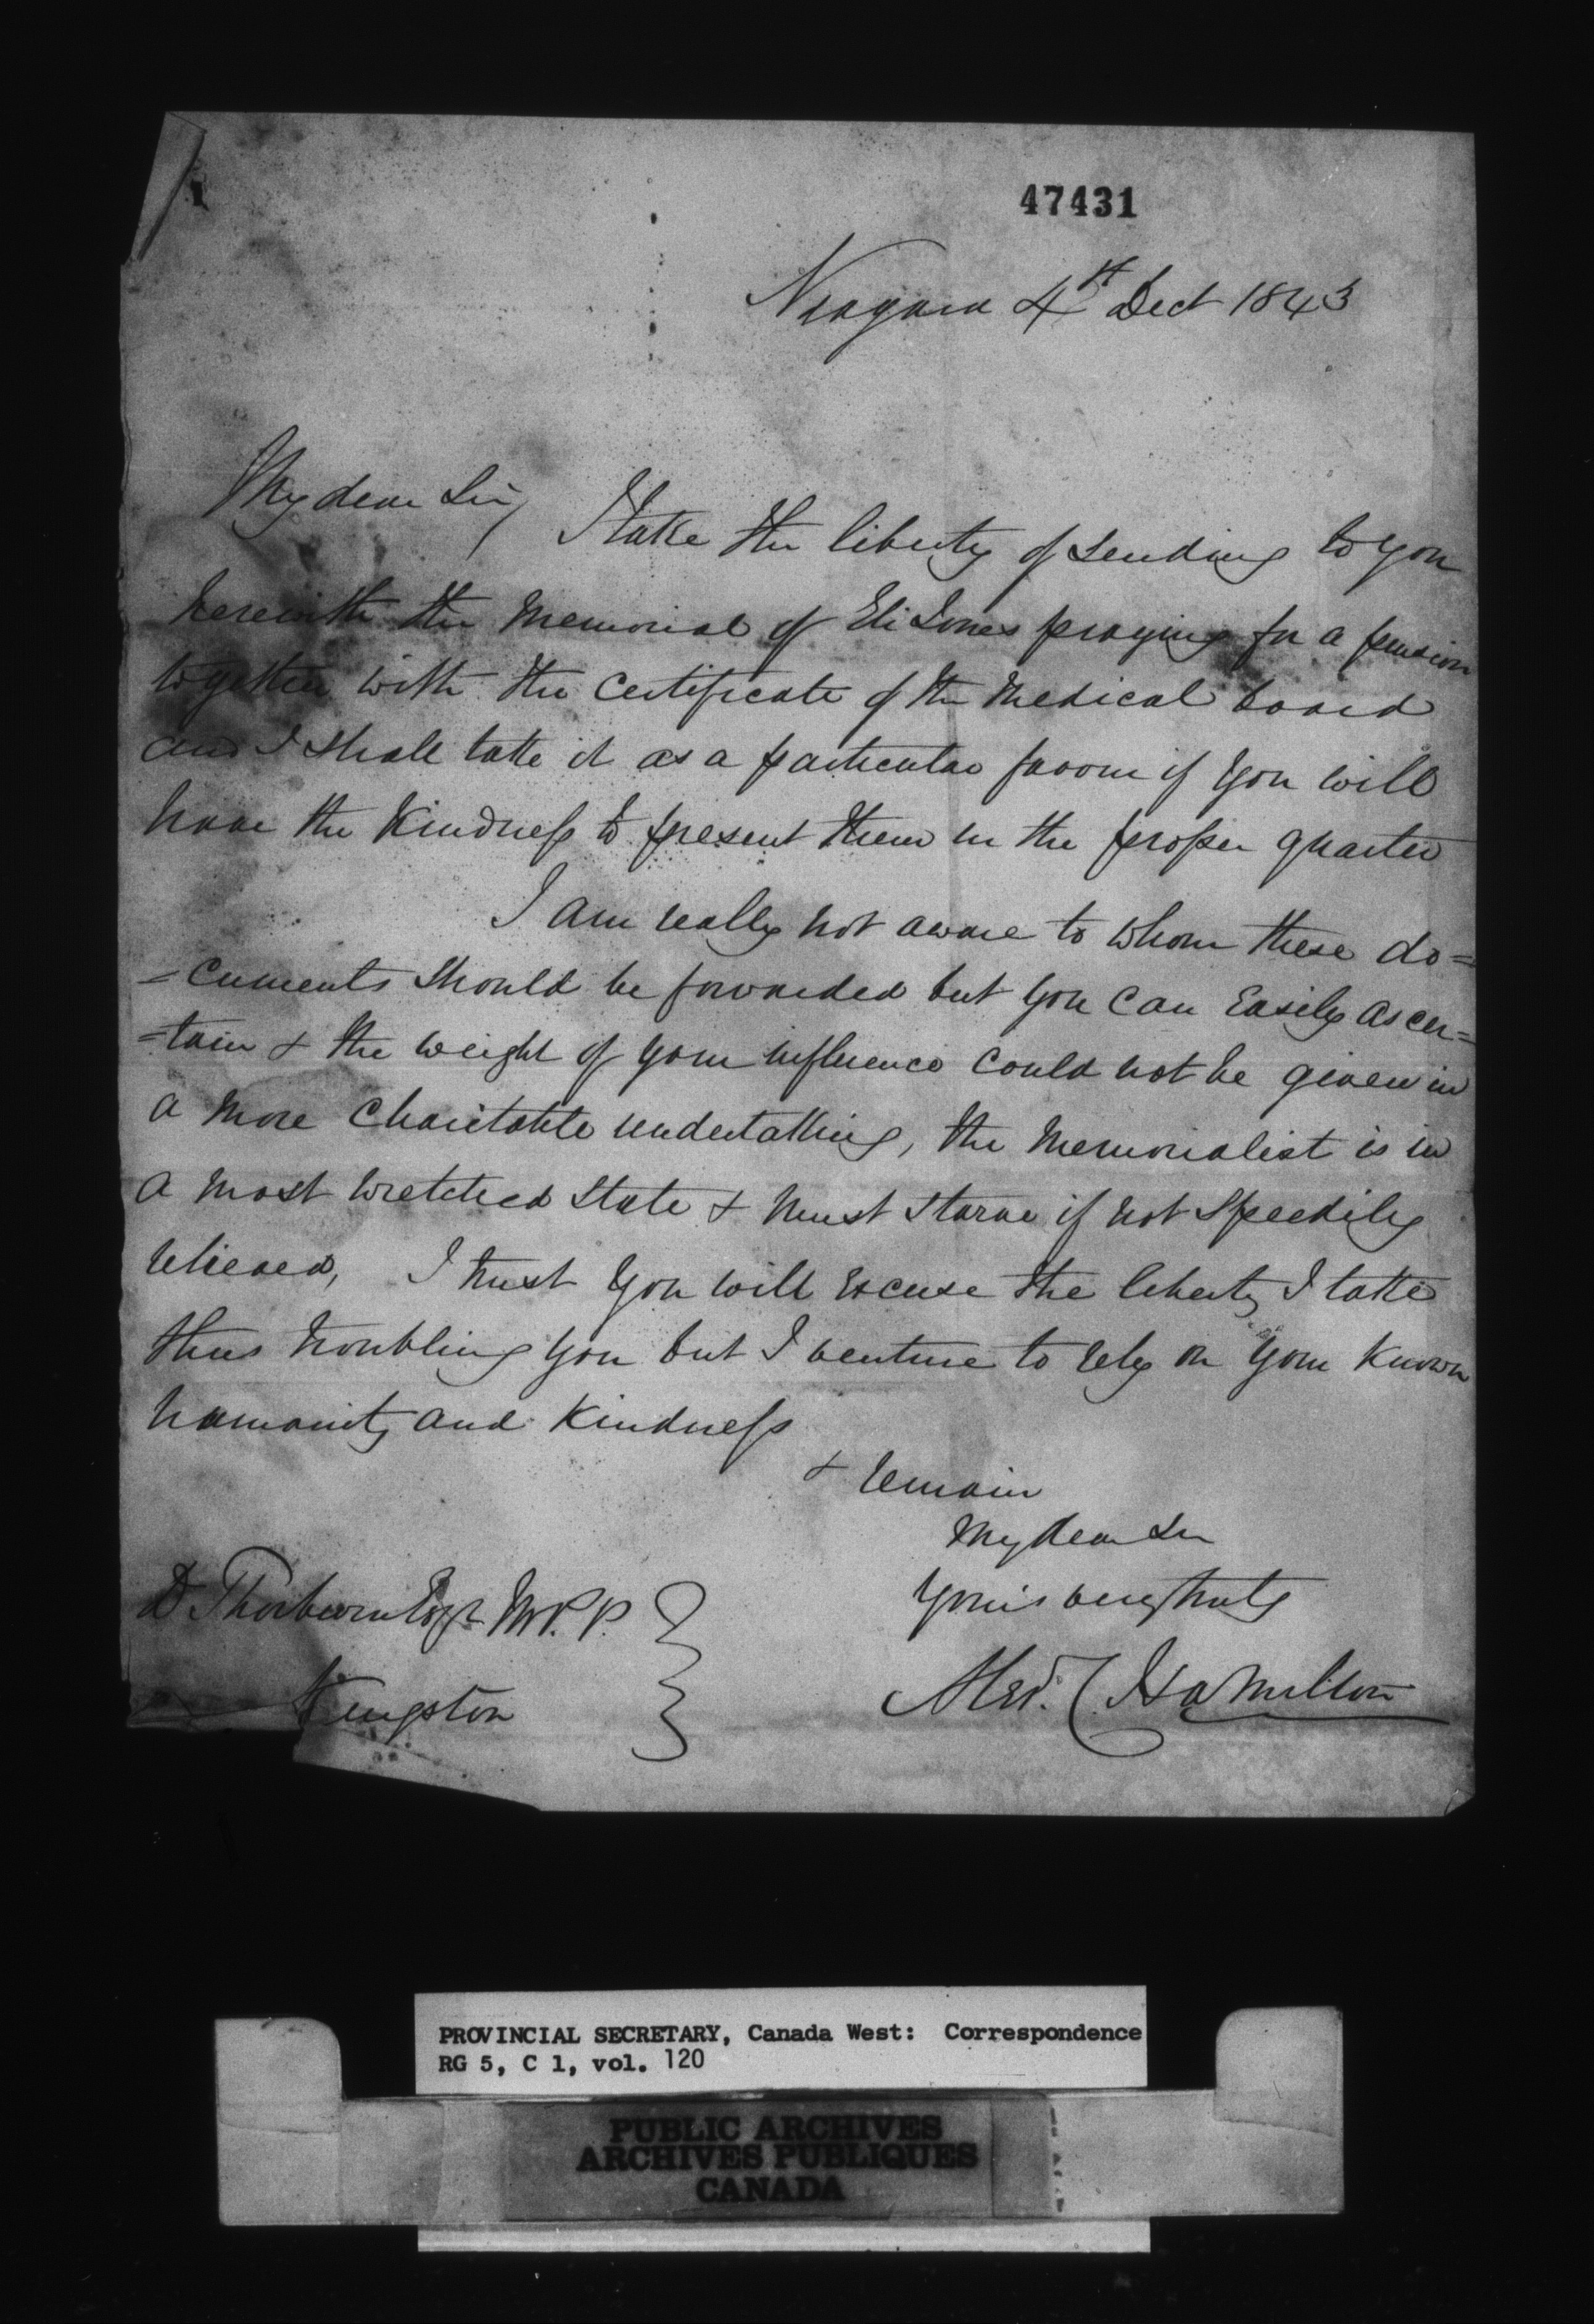 47431
Niagara 4th Dect 1843
My dear Sir,
I take the liberty of sending to you
herewith the Memorial of Eli Jones praying for a pension
together with the Certificate of the Medical board
and I shall take it as a particular favour if you will
have the Kindness to present them in the proper quarter
I am really not aware to whom these do=
=cuments should be forwarded but you can Easily ascer=
=tain & the weight of your influence could not be given in
a more Charitable undertaking, the Memorialist is in
a most wretched state & must starve if not speedily
relieved, I trust you will excuse the liberty I take
thus troubling you but I venture to rely on your known
humanity and Kindness
& remain
My dear Sir
Yours very truly
Alexr. Hamilton
D. Thorburn Esqr M.P.P.
Kingston
PROVINCIAL SECRETARY, Canada West: Correspondence
RG 5, C 1, vol. 120
PUBLIC ARCHIVES
ARCHIVES PUBLIQUES
CANADA